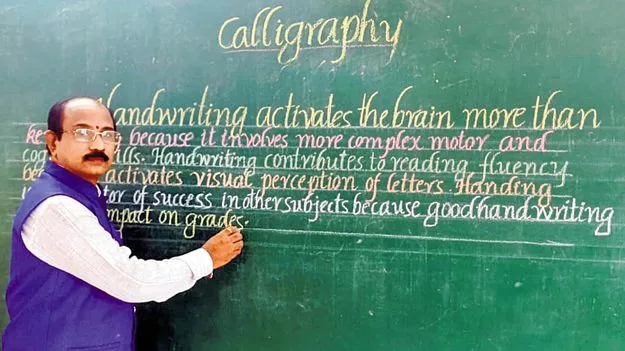 Calligraphy
Handwriting activates the brain more than
because it involves more complex motor and
Handwriting contributes to reading fluency
activates visual perception of letters. Handing
of success in other subjects because good handwriting
impact on grades.